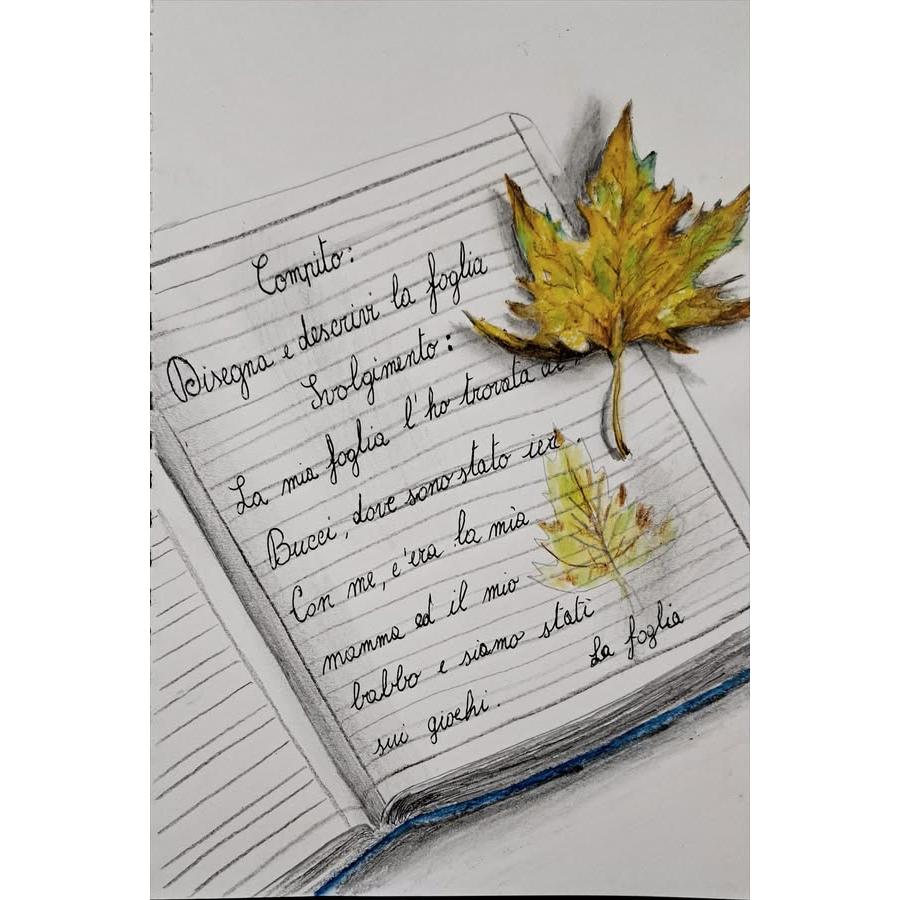 Compito:
Disegna e descrivi la foglia
Svolgimento:
La mia foglia l'ho trovata ai
Bucci, dove sono stato ieri.
Con me, c'era la mia
mamma ed il mio
babbo e siamo stati
sui giochi.
La foglia